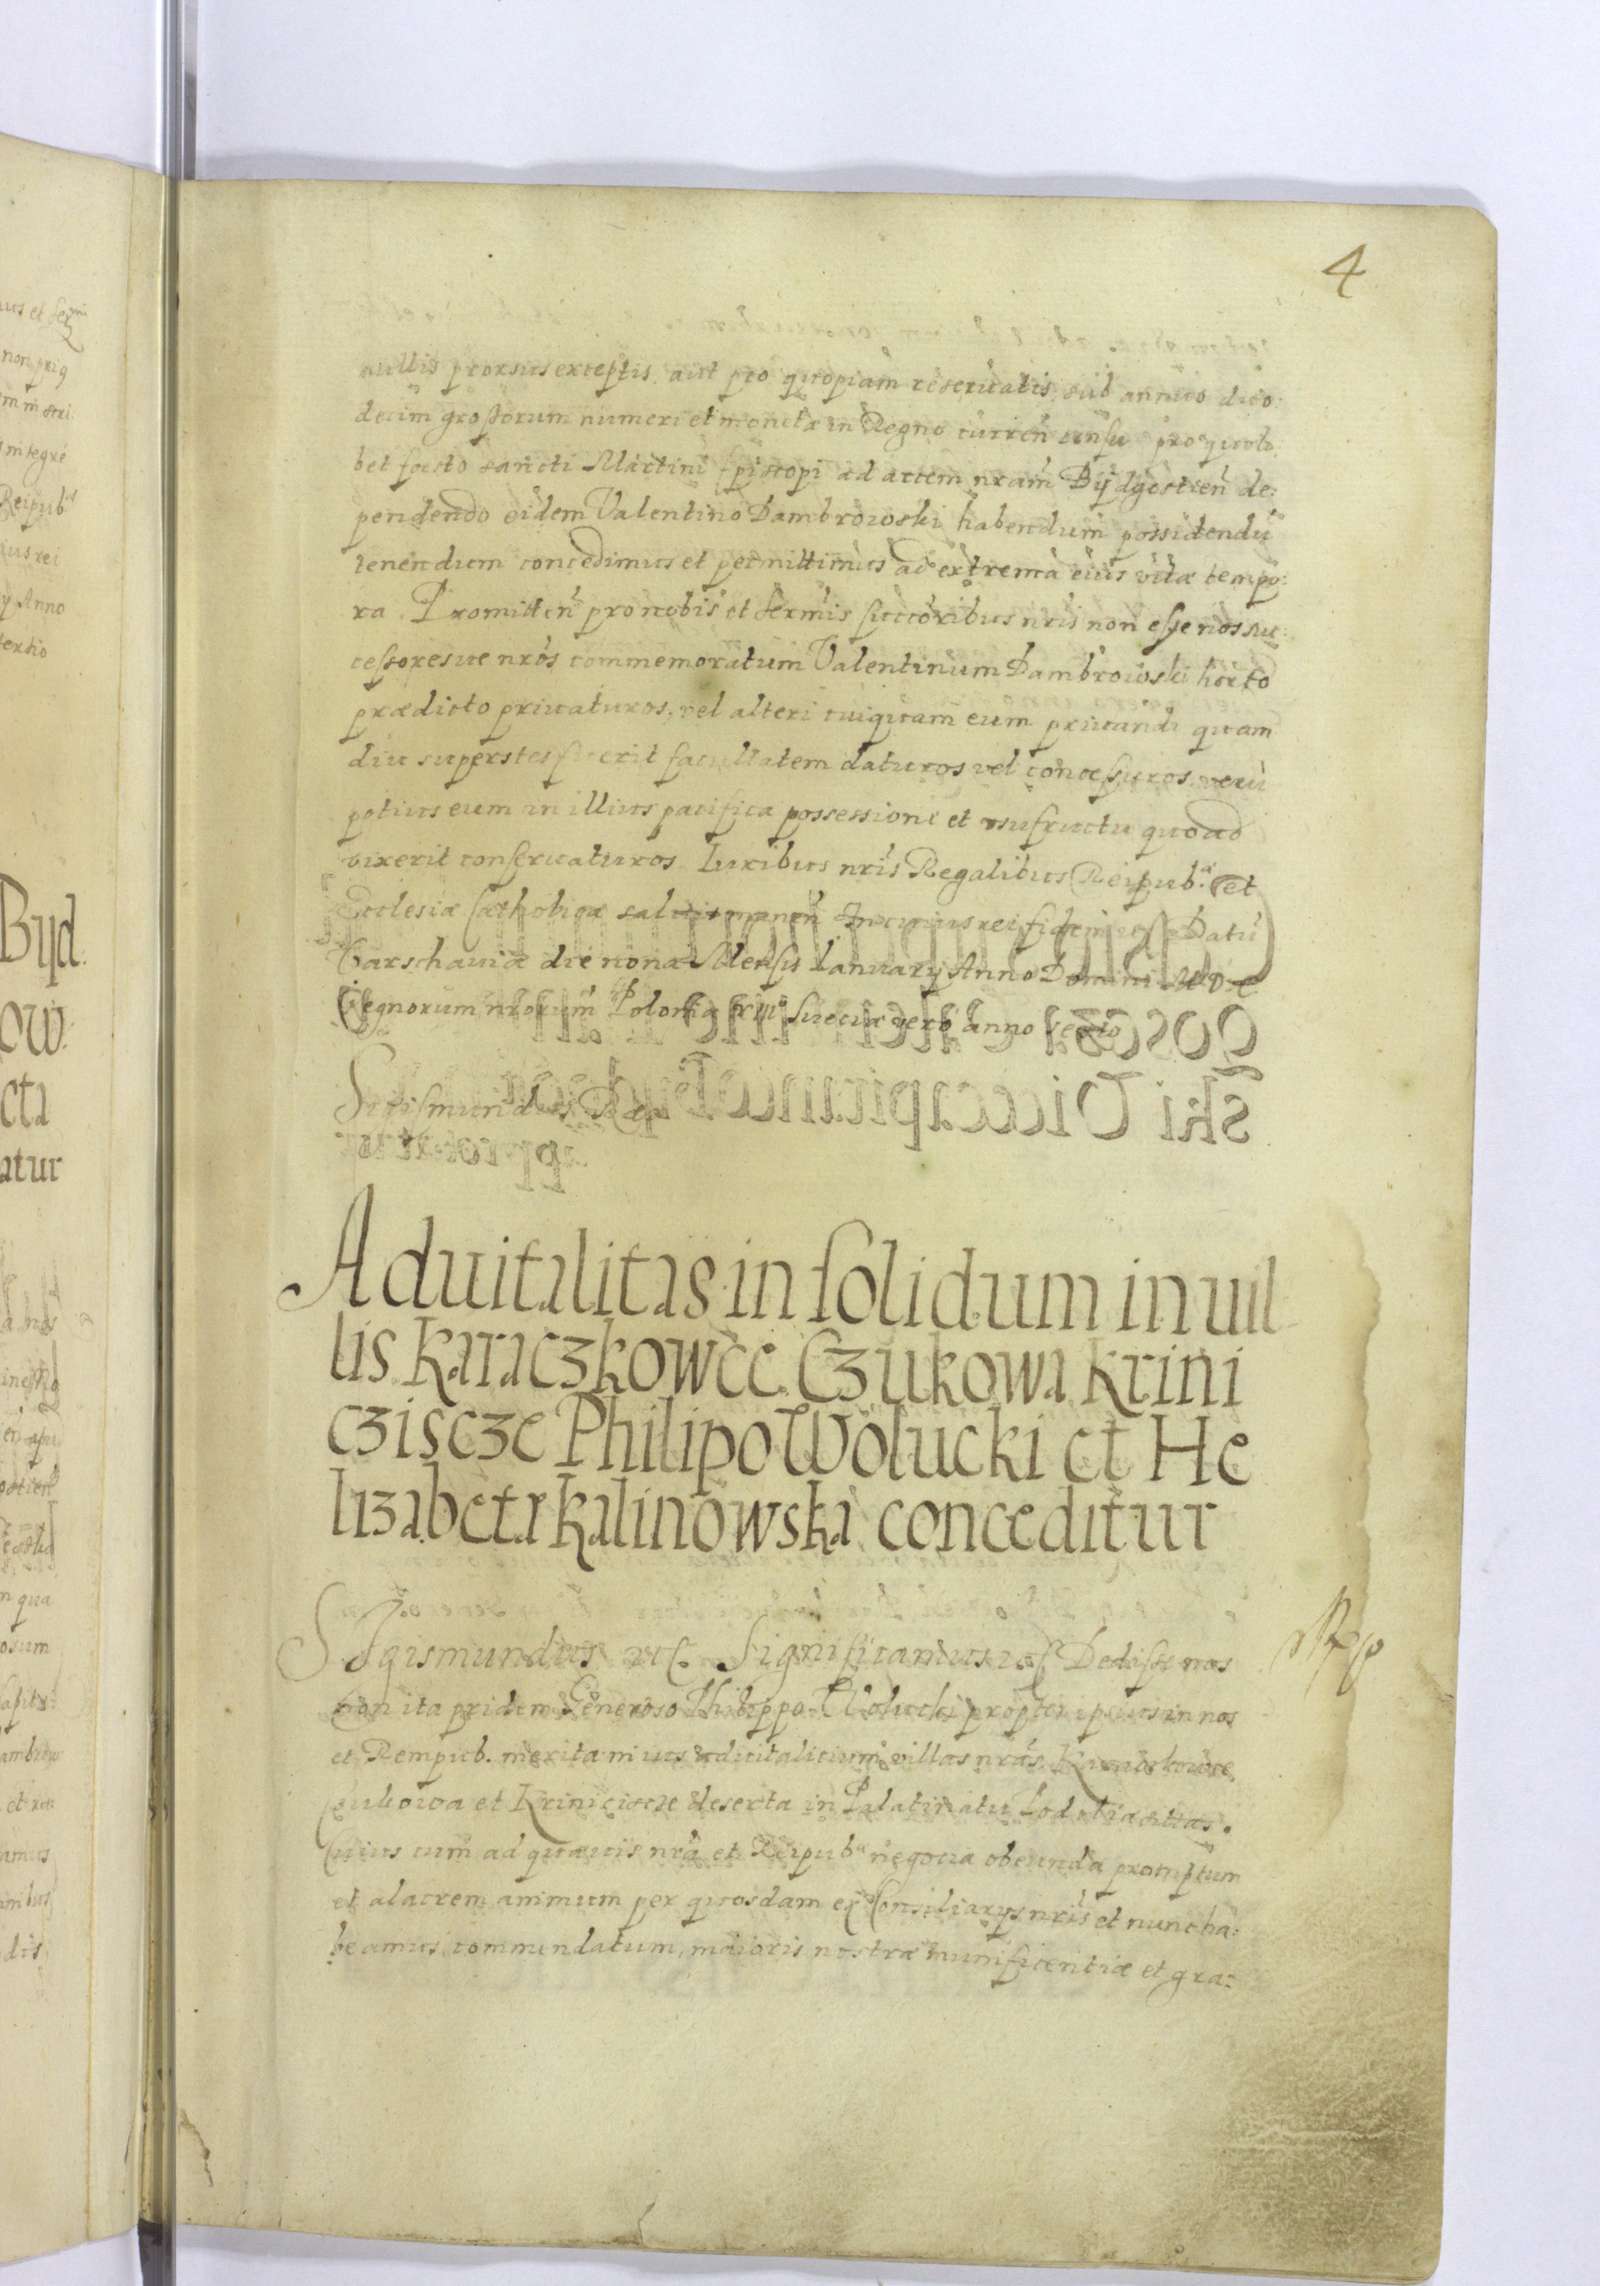 4
nullis prorsus exceptis aut pro quopiam reseruatis, sub annuo duo:
decim grossorum numeri et monetæ in Regno curren̄ censu pro quoli
bet festo sancti Martini Episcopi ad arcem nrām Bÿdgostien̄ de:
pendendo eidem Valentino Dambrowski habendum possidendū
tenendum concedimus et permittimus ad extrema eius vitæ tempo:
ra. Promitten̄ pro nobis et Sermīs succōribus nrīs non esse nos suc:
cessoresue nrōs commemoratum Valentinum Dambrowski horto
prædicto priuaturos, vel alteri cuiquam eum priuandi quam
diu superstes fuerit facultatem daturos vel concessuros, verū
potius eum in illius pacifica possessione et usufructu quoad
vixerit conseruaturos. Iuribus nrīs Regalibus Reipub. et
Ecclesiæ Catholicæ saluis manen̄ In cuius rei fidem Datū
Varschauiæ die nona Mensis Ianuarÿ Anno Domini
Regnorum nrōrum Poloniæ Sueciæ vero anno
Sigismundus Rex
Aduitalitas in solidum in uil
lis Karaczkowce Czukowa Krini
cziscze Philipo Wolucki et He
lizabeta Kalinowska conceditur
SIgismundus etc. Significamus etc Dedisse nos
non ita pridem Generoso Philippo Wolucki propter ipsius in nos
et Rempub. merita aduitalitium villas nrās Karaczkowce
Czukowa et Kriniciscze deserta in Palatinatu Podoliæ sitas.
Cuius cum ad quæuis nrā et Reipub negocia obeunda promptum
et alacrem animum per quosdam ex Consiliarÿs nrīs et nunc ha:
beamus commendatum, maioris nostræ munificentiæ et gra: